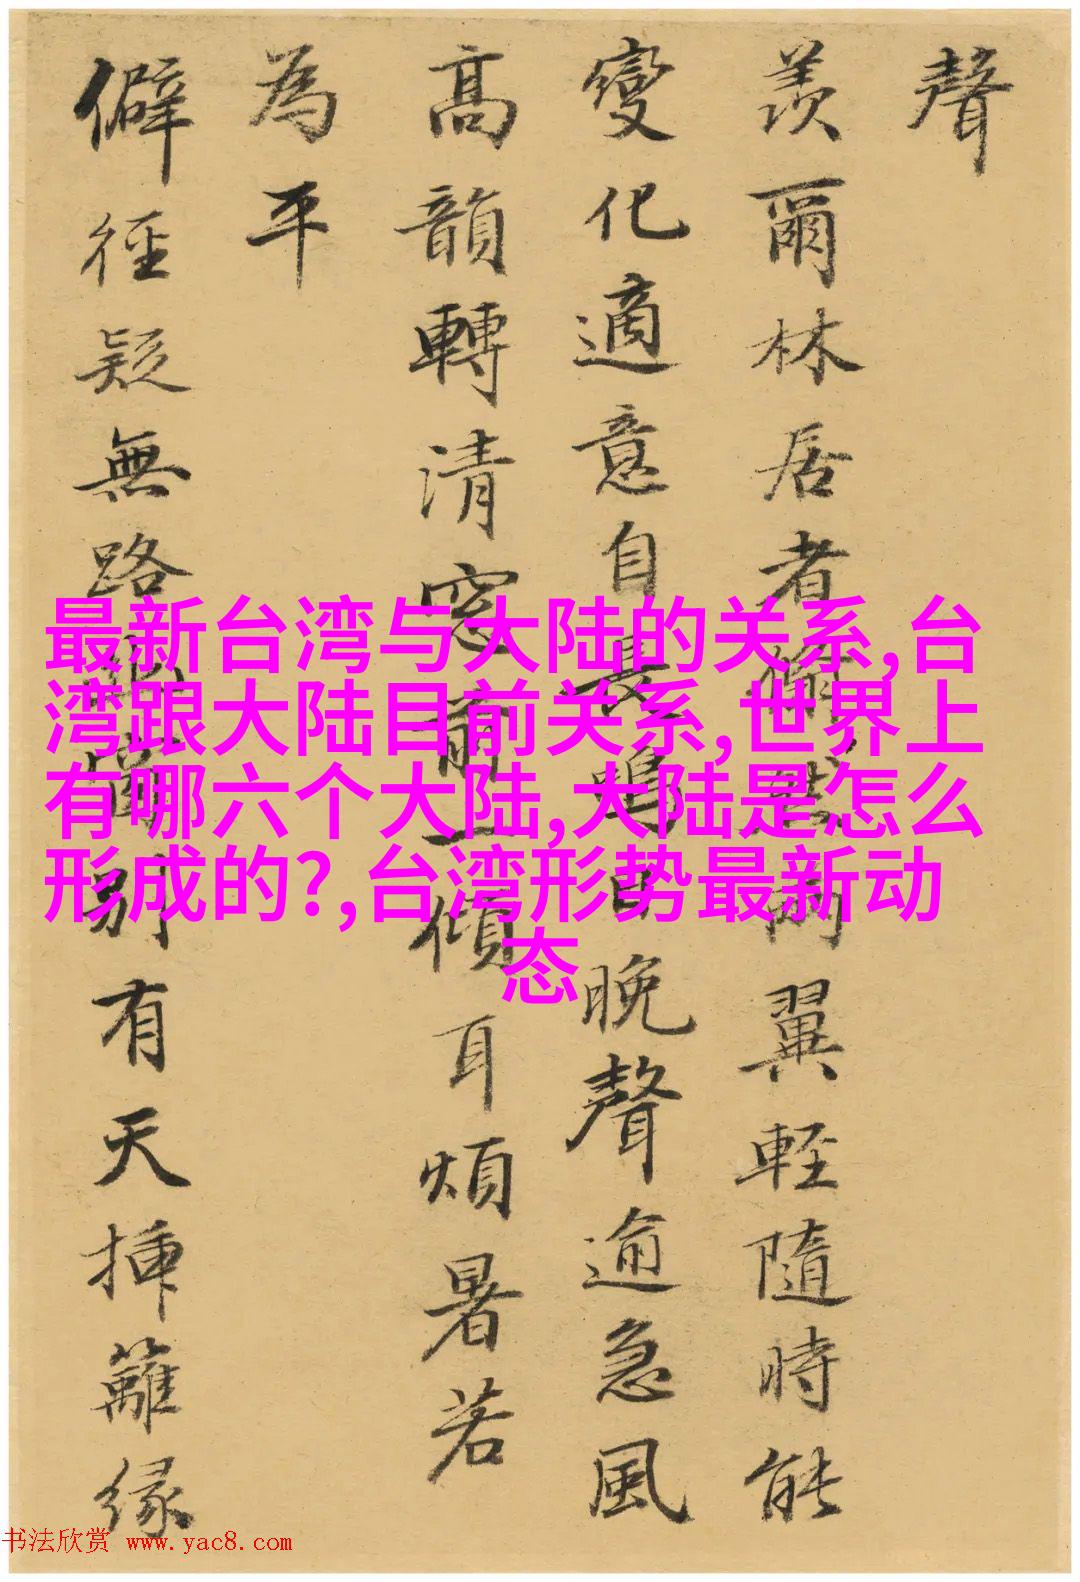 聲
羨爾林居者然兩翼輕隨時能
變化適意自長鳴日晚聲逾急風
高韻轉清窓前一傾耳煩暑若
為平
僻徑疑無路別有天挿籬緣
最新台湾与大陆的关系,台
湾跟大陆目前关系,世界上
有哪六个大陆,大陆是怎么
形成的?,台湾形势最新动
态
书法欣赏 www.yac8.com